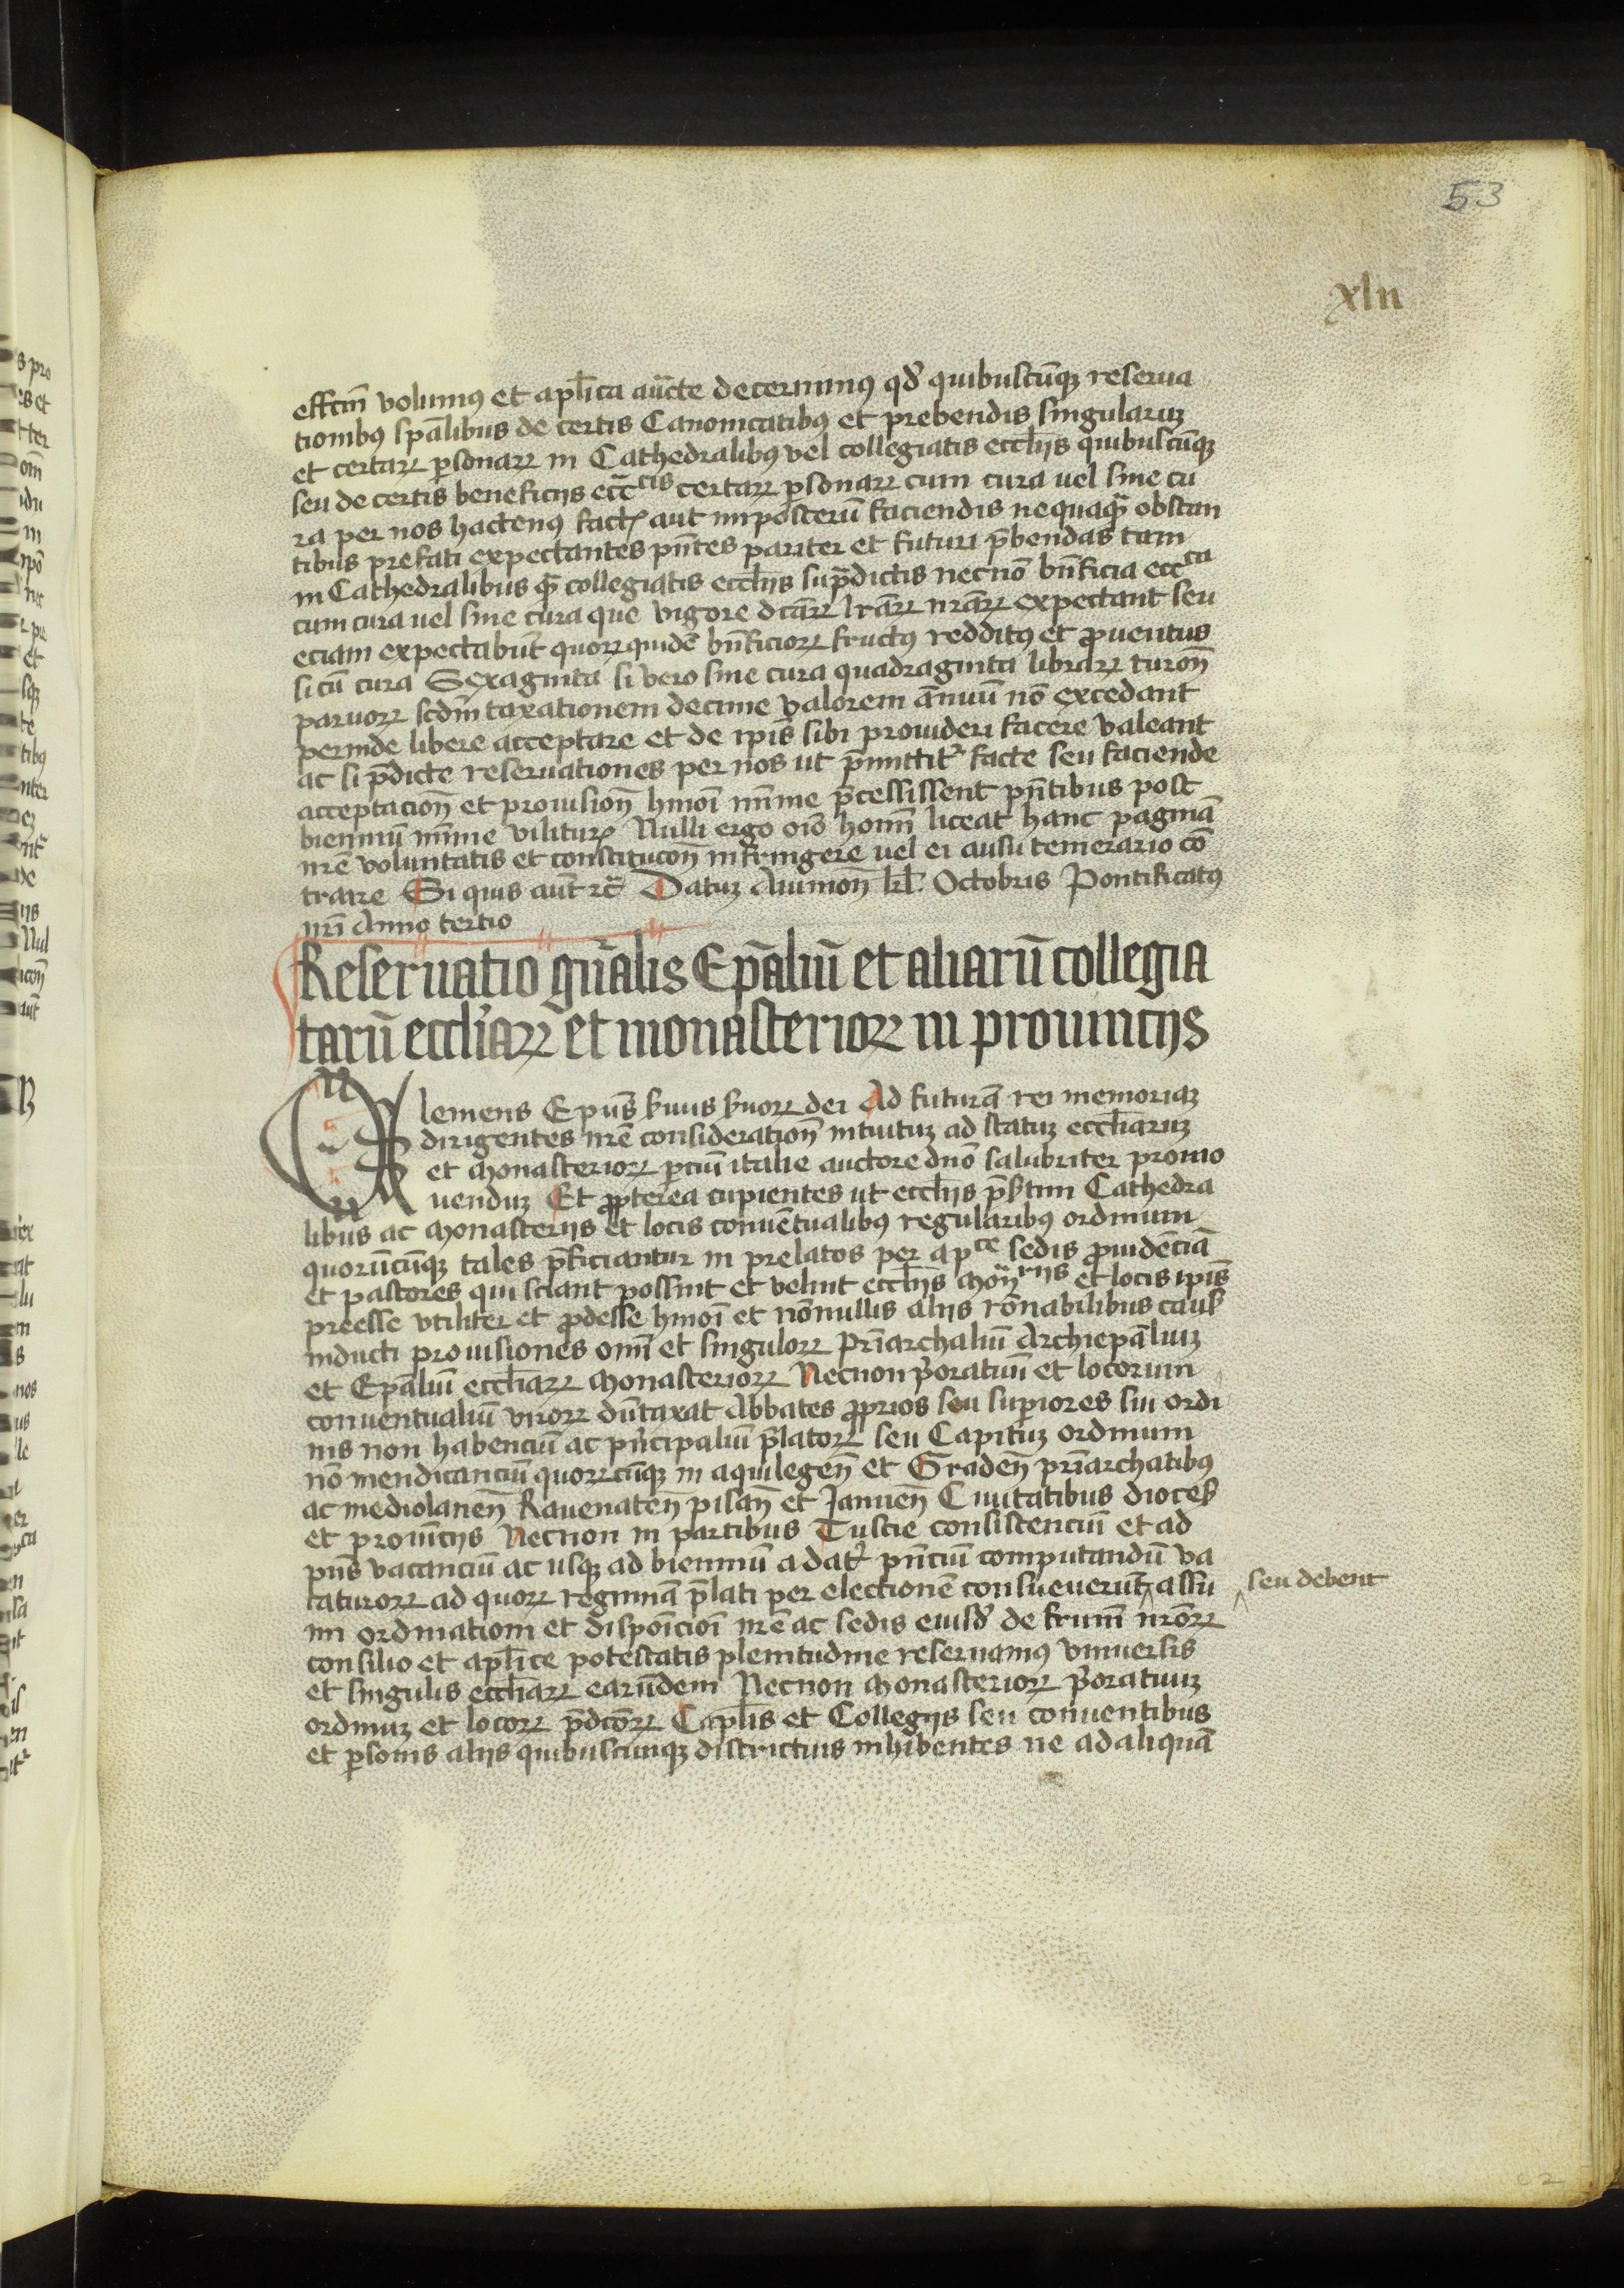 53
xlii
effctm̄ volumꝰ et apl̄ica auc̄te decernimꝰ qd̛ quibuscūqꝫ reserua
tionibꝰ sp̄alibus de certis Canonicatibꝰ et prebendis singularuꝫ
et certaꝝ ꝑsonaꝝ in Cathedralibꝰ vel collegiatis eccl̄ijs quibuscūqꝫ
seu de certis beneficijs ecc̄cis certaꝝ ꝑsonaꝝ cum cura uel sine cu
ra per nos hactenꝰ fact̛ aut imposterū faciendis nequaqᷓ obstan
tibus prefati expectantes pn̄tes pariter et futuri p̄bendas tam
in Cathedralibus qᷓ collegiatis eccl̄ijs sup̄dictis necnō bn̄ficia ecc̄ca
cum cura uel sine cura que vigore dc̄aꝝ lr̄aꝝ nr̄aꝝ expectant seu
eciam expectabūt quoꝝ quidē bn̄ficioꝝ fructꝰ redditꝰ et ꝓuentus
si cū cura Sexaginta si vero sine cura quadraginta libraꝝ turon̄
paruoꝝ scdm̄ taxationem decime valorem ānuū nō excedant
perinde libere acceptare et de ip̄is sibi prouideri facere valeant
ac si p̄dicte reseruationes per nos ut p̄mittit̛ facte seu faciende
acceptacion̄ et prouision̄ hmōi mīme p̄cessissent pn̄tibus post
bienniū mīme vilitur̛ Nulli ergo oīo homī liceat hanc paginā
nr̄e voluntatis et constitucōn̄ infringere uel ei ausu temerario cō
traire Si quis aūt ꝛc̄ Datuꝫ Auinion̄ kl̄. Octobris Pontificatꝰ
nr̄i Anno tertio
Reseruatio gn̄ralis Ep̄aliū et aliarū collegia
tarū eccl̄iaꝝ et monasterioꝝ in prouincijs
Clemens Epūs s̛uus s̛uoꝝ dei Ad futurā rei memoriaꝫ
dirigentes nr̄e consideration̄ intuituꝫ ad statuꝫ eccl̄iaruꝫ
et monasterioꝝ ꝑciū italie auctore dn̄o salubriter promo
uenduꝫ Et ꝓpterea cupientes ut eccl̄ijs p̄s̛tim Cathedra
libus ac monasterijs et locis conuētualibꝰ regularibꝰ ordinum
quorūcūqꝫ tales p̄ficiantur in prelatos per apce sedis ꝓuidēciā
et pastores qui sciant possint et velint eccl̄ijs mōn̄rijs et locis ip̄is
preesse vtiliter et ꝓdesse hmōi et nōnullis alijs rōnabilibus caus̛
inducti prouisiones om̄i et singuloꝝ Pr̄iarchaliū Archiep̄aliuꝫ
et Ep̄aliū eccl̄iaꝝ monasterioꝝ Necnon p̛oratuū et locorum
conuentualiū viroꝝ dūtaxat Abbates ꝓprios seu suꝑiores sui ordi
nis non habenciū ac pn̛cipaliū p̄latoꝝ seu Capituꝫ ordinum
nō mendicanciū quoꝝcūqꝫ in aquilegen̄ et Graden̄ pr̄iarchatibꝰ
ac mediolanen̄ Rauenaten̄ pisan̄ et Januen̄ Ciuitatibus dioces̛
et prouīcijs Necnon in partibus Tuscie consistenciū et ad
pn̄s vacanciū ac usqꝫ ad bienniū a dat̛ pn̄ciū computandū va
caturoꝝ ad quoꝝ regimīa p̄lati per electionē consueuerūt ‸ assu ‸ seu debent
mi ordinationi et dispōicioī nr̄e ac sedis eiusd̛ de frum̄ nr̄oꝝ
consilio et apl̄ice potestatis plenitudine reseruamꝰ vniuersis
et singulis eccl̄iaꝝ earūdem Necnon monasterioꝝ p̛oratuuꝫ
ordinuꝫ et locoꝝ p̄dc̄oꝝ Capl̄is et Collegijs seu conuentibus
et ꝑsonis alijs quibuscunqꝫ districtius inhibentes ne ad aliquā